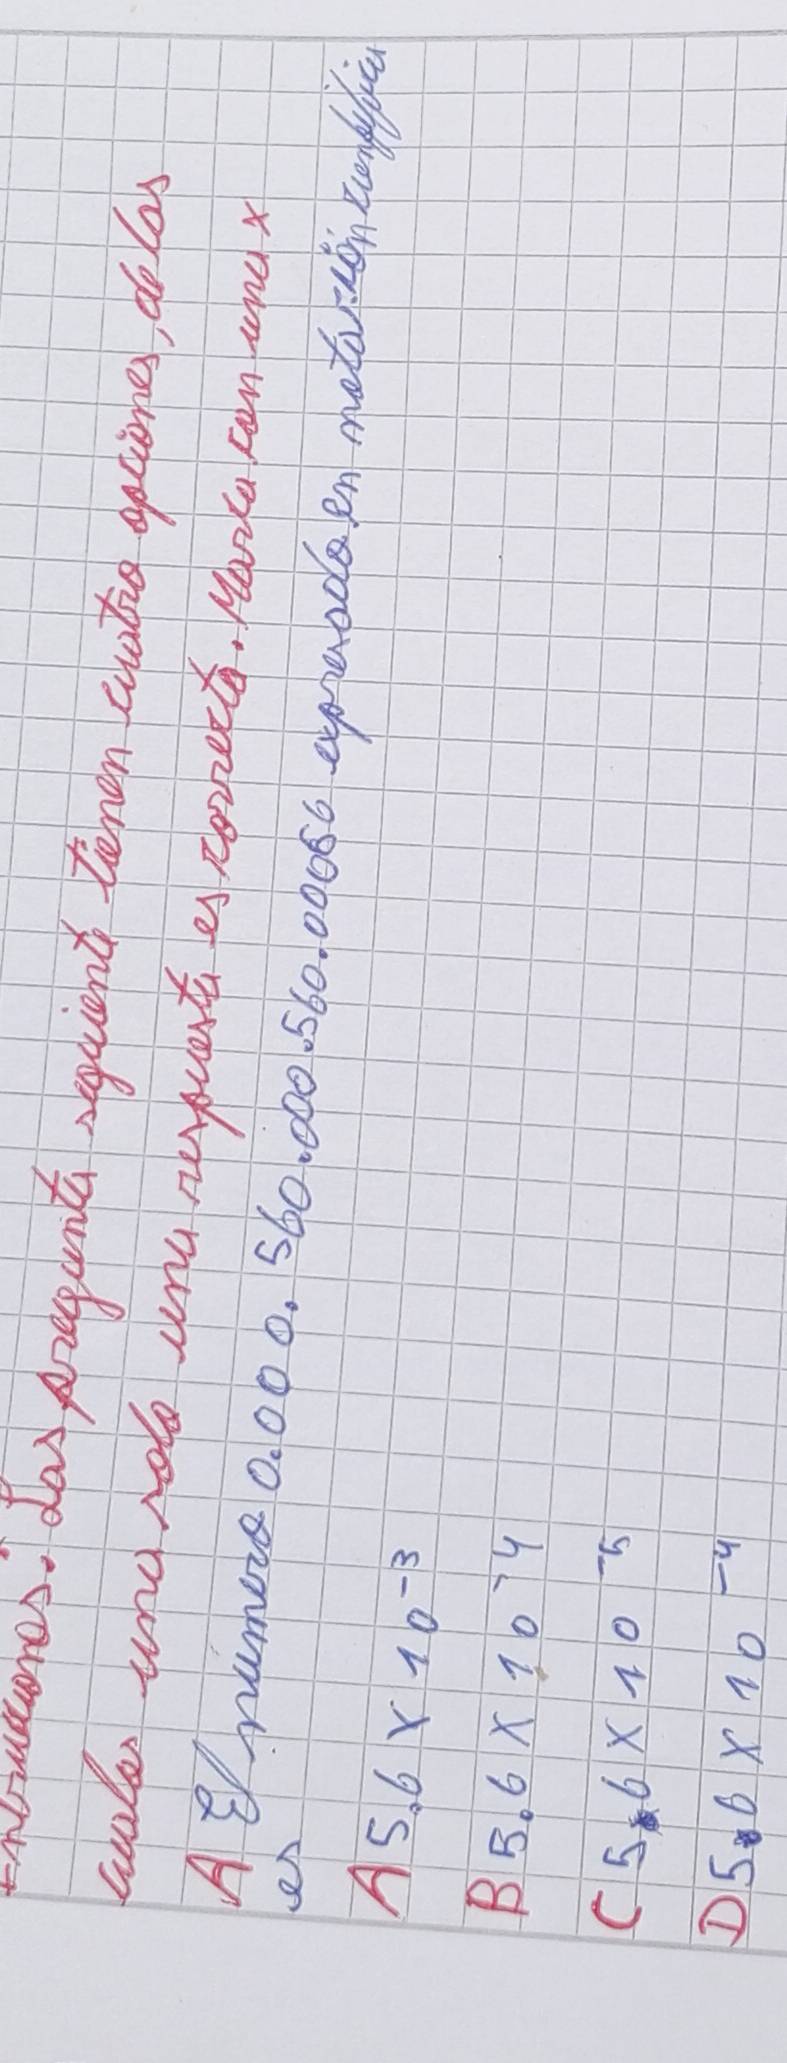 Las pregunta siguiente tienen cuatro opciones, de las
cuales una sola una respuesta es correcta. Marca con una x
A El numero 0.000. 560.000.560.00056 expresado en notación científica
es
A 5.6 X 10⁻³
B 5.6 X 10⁻⁴
C 5.6 X 10⁻⁵
D 5.6 X 10⁻⁴